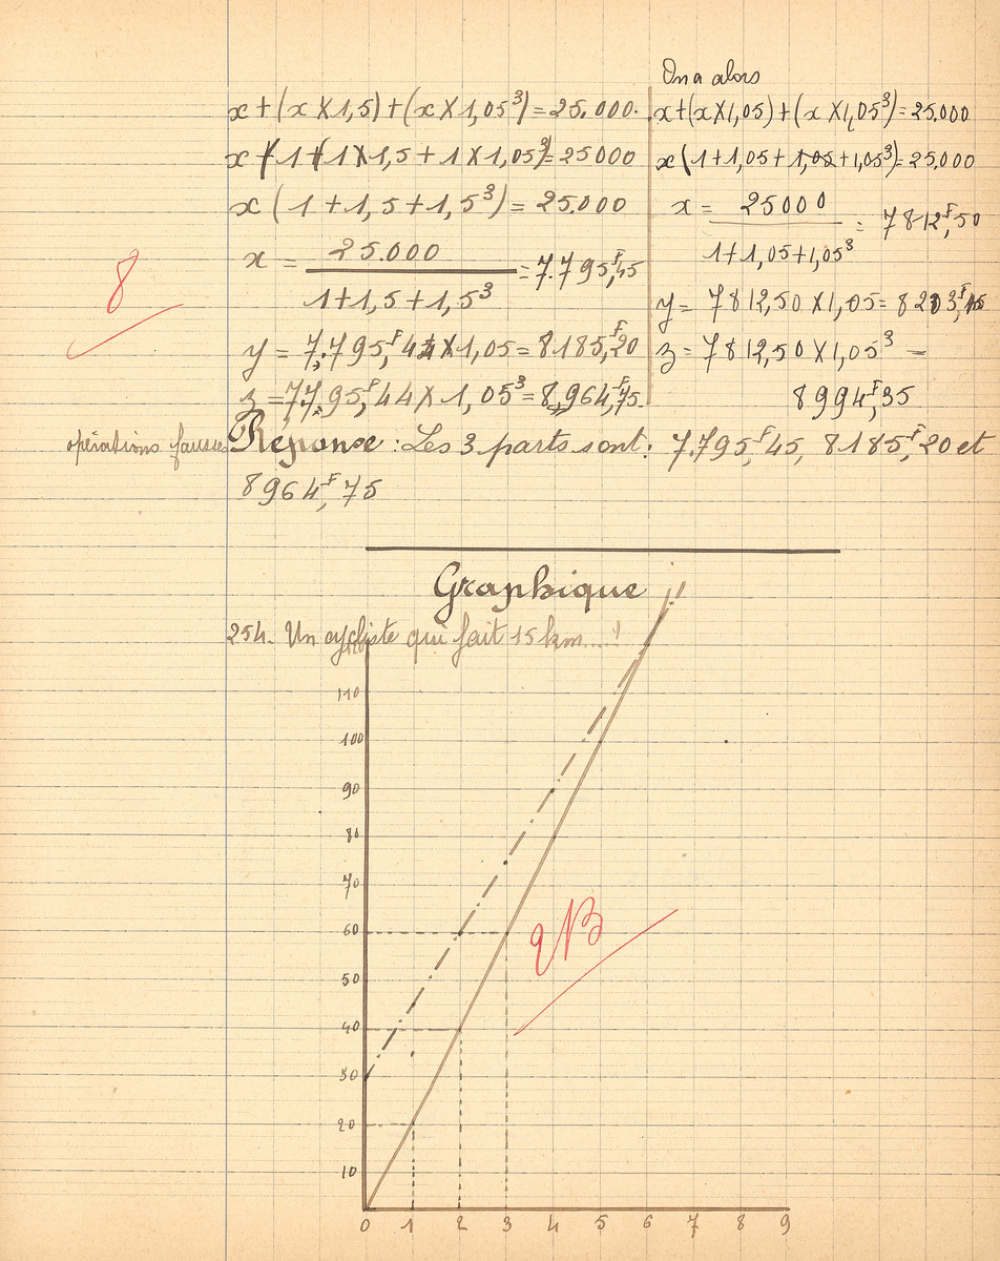 x + (x X 1,5) + (x X 1,05³) = 25.000.
x (1 + (1 X 1,5 + 1 X 1,05³) = 25000
x (1 + 1,5 + 1,5³) = 25.000
x = 25.000 / 1+1,5+1,5³ = 7.795,F45
y = 7.795,F44 X 1,05 = 8185,F20
z = 7795,F44 X 1,05³ = 8964,F75.
On a alors
x+(x X 1,05) + (x X 1,05³) = 25.000
x (1+1,05+1,05+1,05³) = 25.000
x = 25000 / 1+1,05+1,05³ = 7812,F50
y = 7812,50 X 1,05 = 8203,F15
z = 7812,50 X 1,05³ =
8994,F35
8
opérations fausses
Réponse : Les 3 parts sont : 7.795,F45, 8185,F20 et
8964,F75
Graphique
254. Un cycliste qui fait 15 km....!
110
100
90
80
70
60
50
40
30
20
10
0 1 2 3 4 5 6 7 8 9
9B